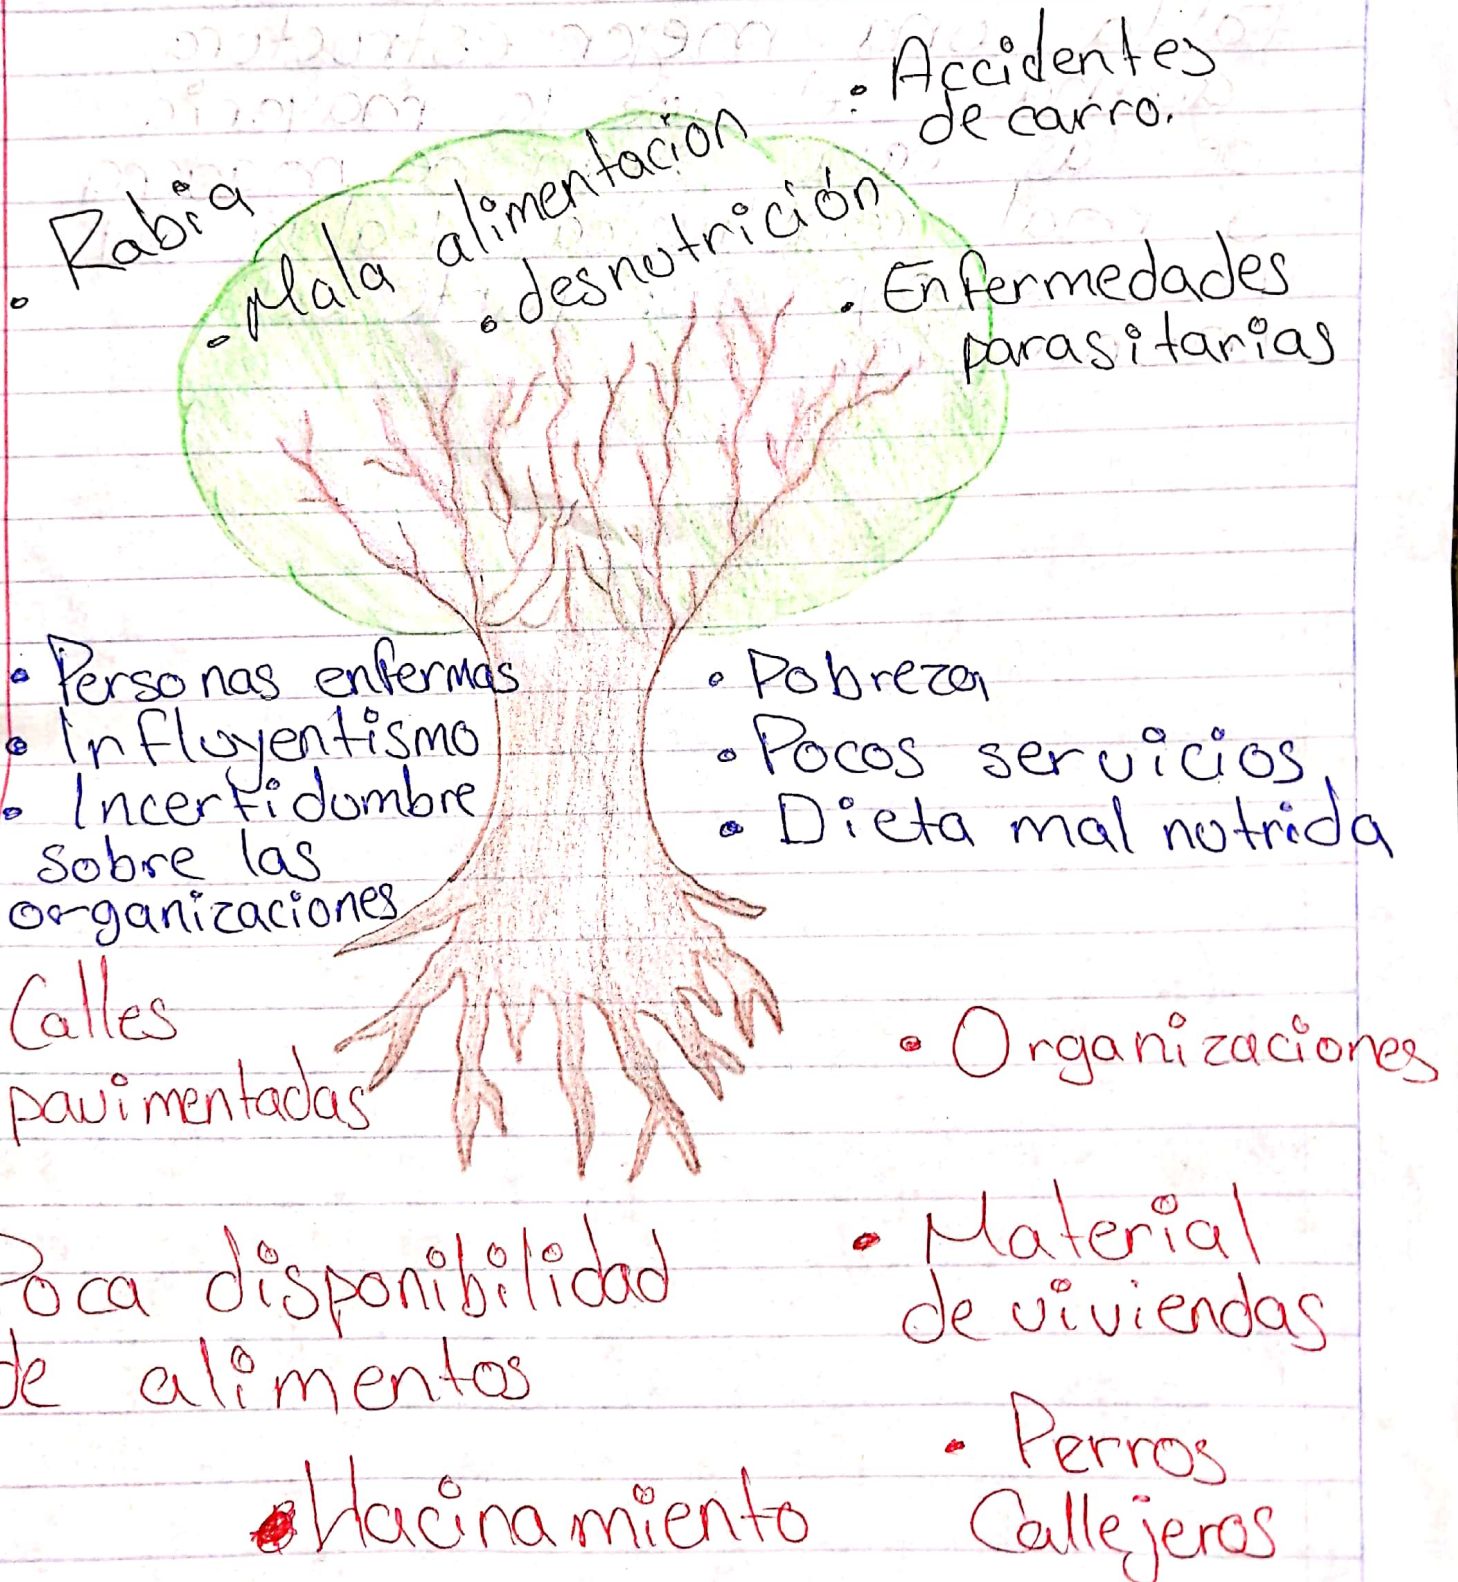 • Accidentes
de carro.
• Rabia
• Mala alimentación
• desnutrición
• Enfermedades
parasitarias
• Personas enfermas
• Influyentismo
• Incertidumbre
sobre las
organizaciones
• Pobreza
• Pocos servicios,
• Dieta mal nutrida
Calles
pavimentadas
• Organizaciones
Poca disponibilidad
de alimentos
• Material
de viviendas
• Hacinamiento
• Perros
Callejeros